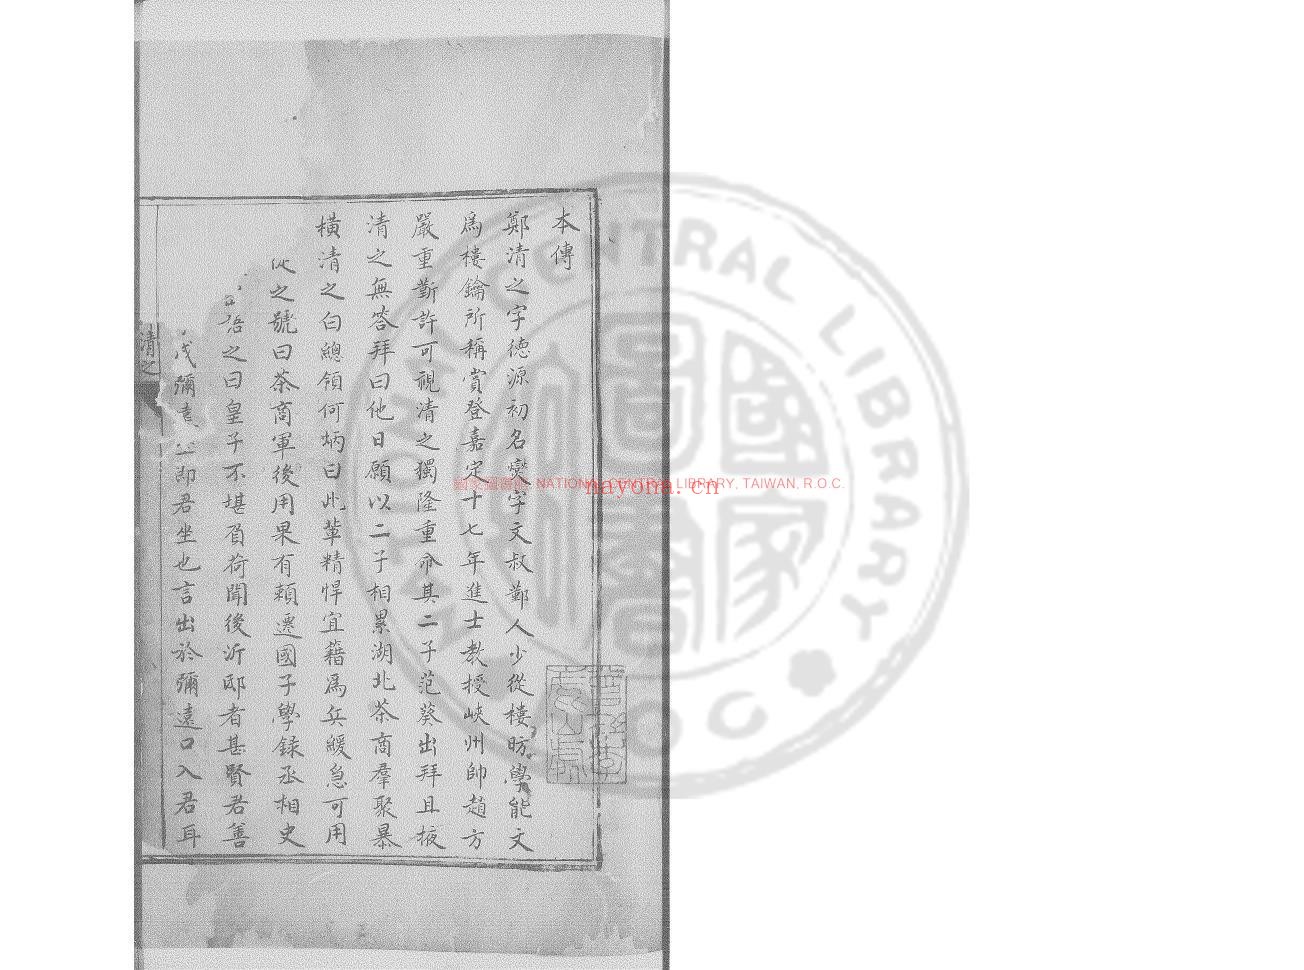 本傳
鄭清之字德源初名燮字文叔鄞人少從樓昉學能文
爲樓鑰所稱賞登嘉定十七年進士教授峽州帥趙方
嚴重靳許可視清之獨隆重命其二子范葵出拜且掖
清之無答拜曰他日願以二子相累湖北茶商羣聚暴
橫清之白總領何炳曰此輩精悍宜籍爲兵緩急可用
從之號曰茶商軍後用果有賴遷國子學録丞相史
語之曰皇子不堪負荷聞後沂邸者甚賢君善
彌遠之即君坐也言出於彌遠口入君耳
清之
國家圖書館 NATIONAL CENTRAL LIBRARY, TAIWAN, R.O.C.
nayona.cn
NATIONAL CENTRAL LIBRARY
ROC
國家圖書館